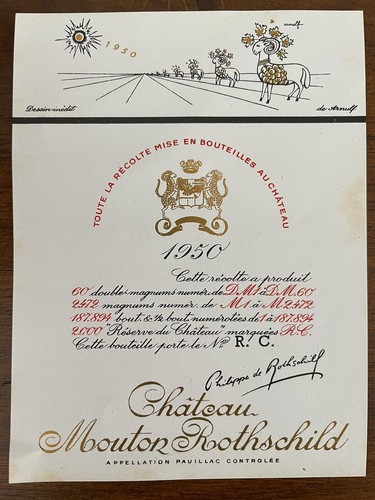 arnulf
1950
Dessin inédit
de Arnulf
TOUTE LA RÉCOLTE MISE EN BOUTEILLES AU CHÂTEAU
1950
Cette récolte a produit
60 double magnums numér. de D.M.1 à D.M.60
2472 magnums numér. de M1 à M2472
187.894 bout. & ½ bout. numérotées de 1 à 187.894
2.000 "Réserve du Château" marquées R.C.
Cette bouteille porte le No R.C.
Philippe de Rothschild
Château
Mouton Rothschild
APPELLATION PAUILLAC CONTROLÉE